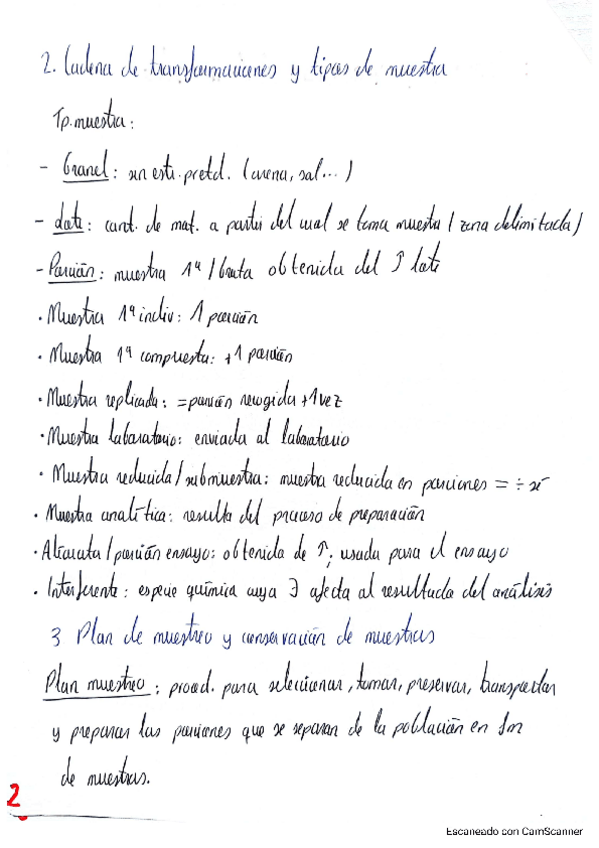 2. Cadena de transformaciones y tipos de muestra
Tp. muestra:
- Granel: sin esti. pretd. (arena, sal...)
- Lote: cant. de mat. a partir del cual se toma muestra (zona delimitada)
- Porción: muestra 1ª/bruta obtenida del ↑ lote
· Muestra 1ª indiv: 1 porción
· Muestra 1ª compuesta: +1 porción
· Muestra replicada: = porción recogida +1 vez
· Muestra laboratorio: enviada al laboratorio
· Muestra reducida/submuestra: muestra reducida en porciones = ÷ sí
· Muestra analítica: resulta del proceso de preparación
· Alícuota/porción ensayo: obtenida de ↑; usada para el ensayo
· Interferente: especie química cuya ∃ afecta al resultado del análisis
3 Plan de muestreo y conservación de muestras
Plan muestreo: proced. para seleccionar, tomar, preservar, transportar
y preparar las porciones que se separan de la población en fm
de muestras.
2
Escaneado con CamScanner